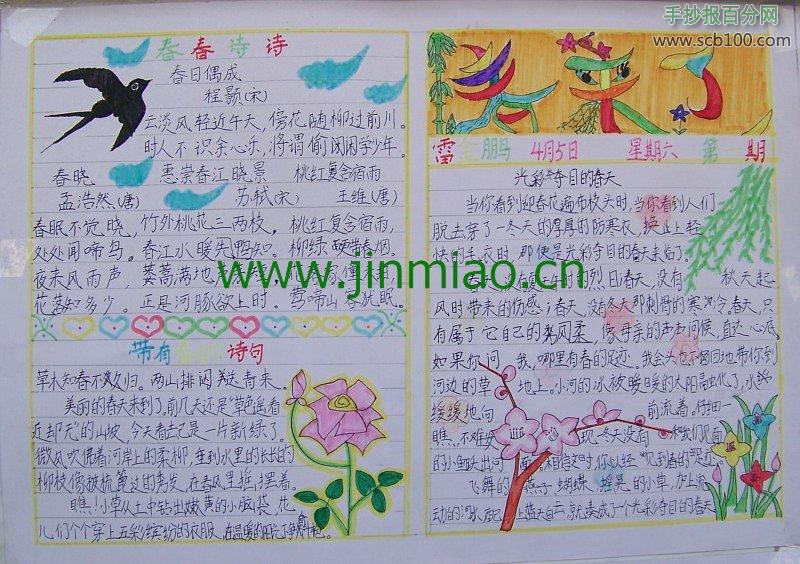 手抄报百分网
www.scb100.com
春春诗诗
春日偶成
程颢(宋)
云淡风轻近午天，傍花随柳过前川。
时人不识余心乐，将谓偷闲学少年。
春晓
孟浩然(唐)
春眠不觉晓，
处处闻啼鸟。
夜来风雨声
花落知多少。
惠崇春江晓景
苏轼(宋)
竹外桃花三两枝，
春江水暖先鸭知。
蒌蒿满地
正是河豚欲上时。
桃红复含宿雨
王维(唐)
桃红复含宿雨，
柳绿更带春烟。
莺啼山客犹眠。
www.jinmiao.cn
带有 诗句
两山排闼送青来。
美丽的春天来到了。前几天还是“草色遥看
近却无”的山坡，今天看去已是一片新绿了。
微风吹拂着河岸上的柔柳，垂到水里的长长的
柳枝像被梳 过的秀发，在春风里摇摆着。
瞧！小草从土中钻出嫩黄的小脑袋，花
儿们个个穿上五彩缤纷的衣服，
春来了
雷 鹏 4月5日 星期六 第 期
光彩夺目的春天
当你看到迎春花遍布枝头时，当你看到人们
脱去穿了一冬天的厚厚的防寒衣，换上轻
快的毛衣时，那便是光彩夺目的春天来临了。
春天，没有 烈日；春天，没有 秋天起
风时带来的伤感；春天，没有冬天那刺骨的寒冷。春天，只
有属于它自己的 风柔，像母亲的声声问候，直达心底。
如果你问我，哪里有春的足迹。我会头也不回地带你到
河边的草地上。小河的冰被暖暖的太阳融化了，水
缓缓地向 前流着。仔细一
瞧，不难发现，冬天没有和我们见面
的小鱼跃出河面。相信这时，你已经“见到春的”足迹。
飞舞的 燕、蝴蝶、摇晃的小草，加上流
动的 ，配上蓝天白云，就凑成了一个光彩夺目的春天